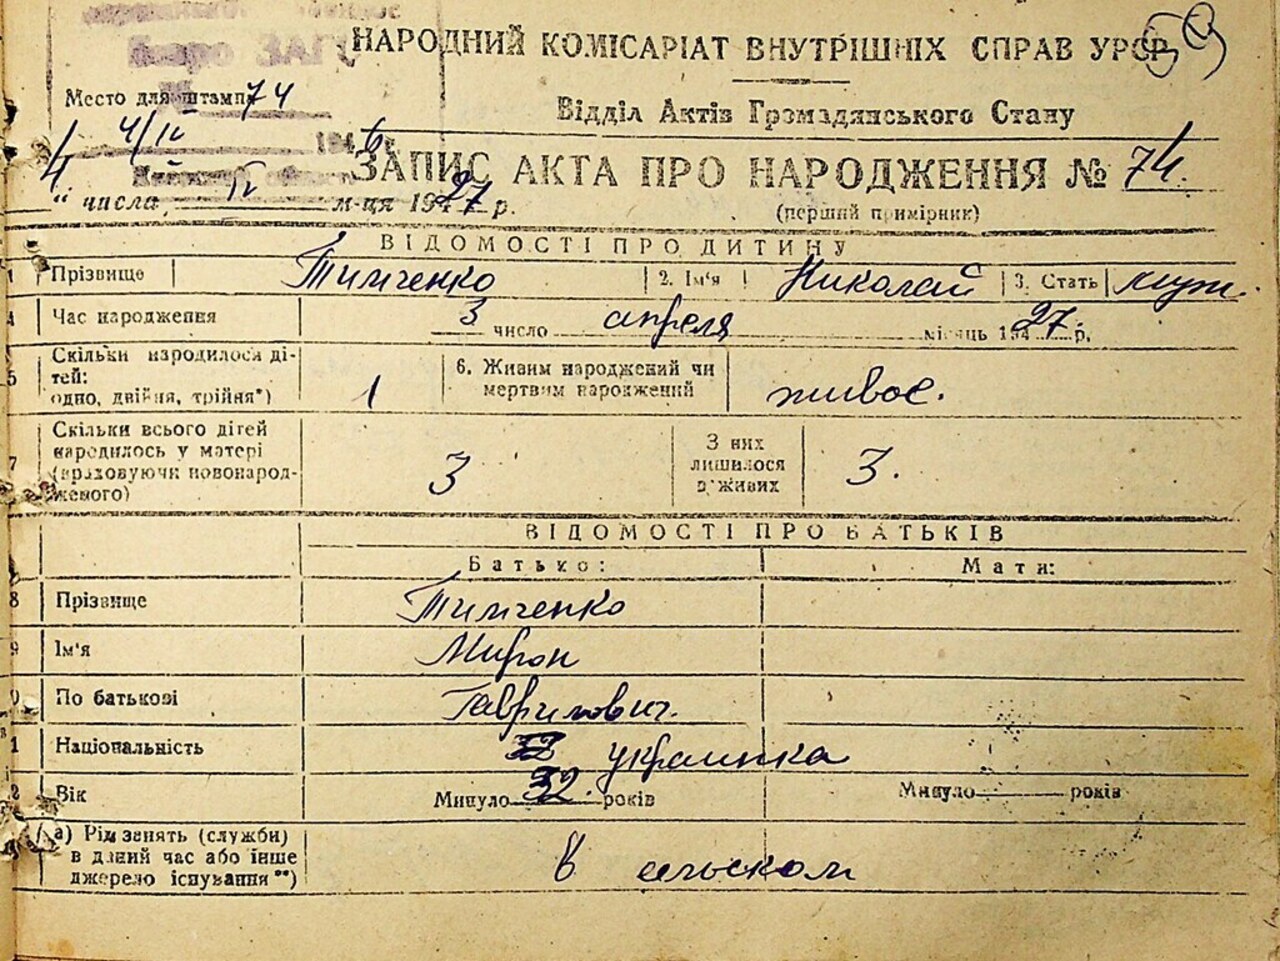 бюро ЗАГС
НАРОДНИЙ КОМІСАРІАТ ВНУТРІШНІХ СПРАВ УРСР
Место для штампа 74
Відділ Актів Громадянського Стану
4/IV 1946
ЗАПИС АКТА ПРО НАРОДЖЕННЯ № 74.
"4" числа IV м-ця 1927 р.
(перший примірник)
ВІДОМОСТІ ПРО ДИТИНУ
1 Прізвище Тимченко 2. Ім'я Николай 3. Стать муж.
4 Час народження 3 число апреля місяць 19427 р.
5 Скільки народилося дітей: одно, двійня, трійня*) 1 6. Живим народжений чи мертвим народжений живое.
7 Скільки всього дітей народилось у матері (враховуючи новонародженого) 3 З них лишилося в живих 3.
ВІДОМОСТІ ПРО БАТЬКІВ
Батько: Мати:
8 Прізвище Тимченко
9 Ім'я Мирон
0 По батькові Гаврилович.
1 Національність украинка
2 Вік Минуло 32. років Минуло років
а) Рід занять (служби) в даний час або інше джерело існування**) в сельском